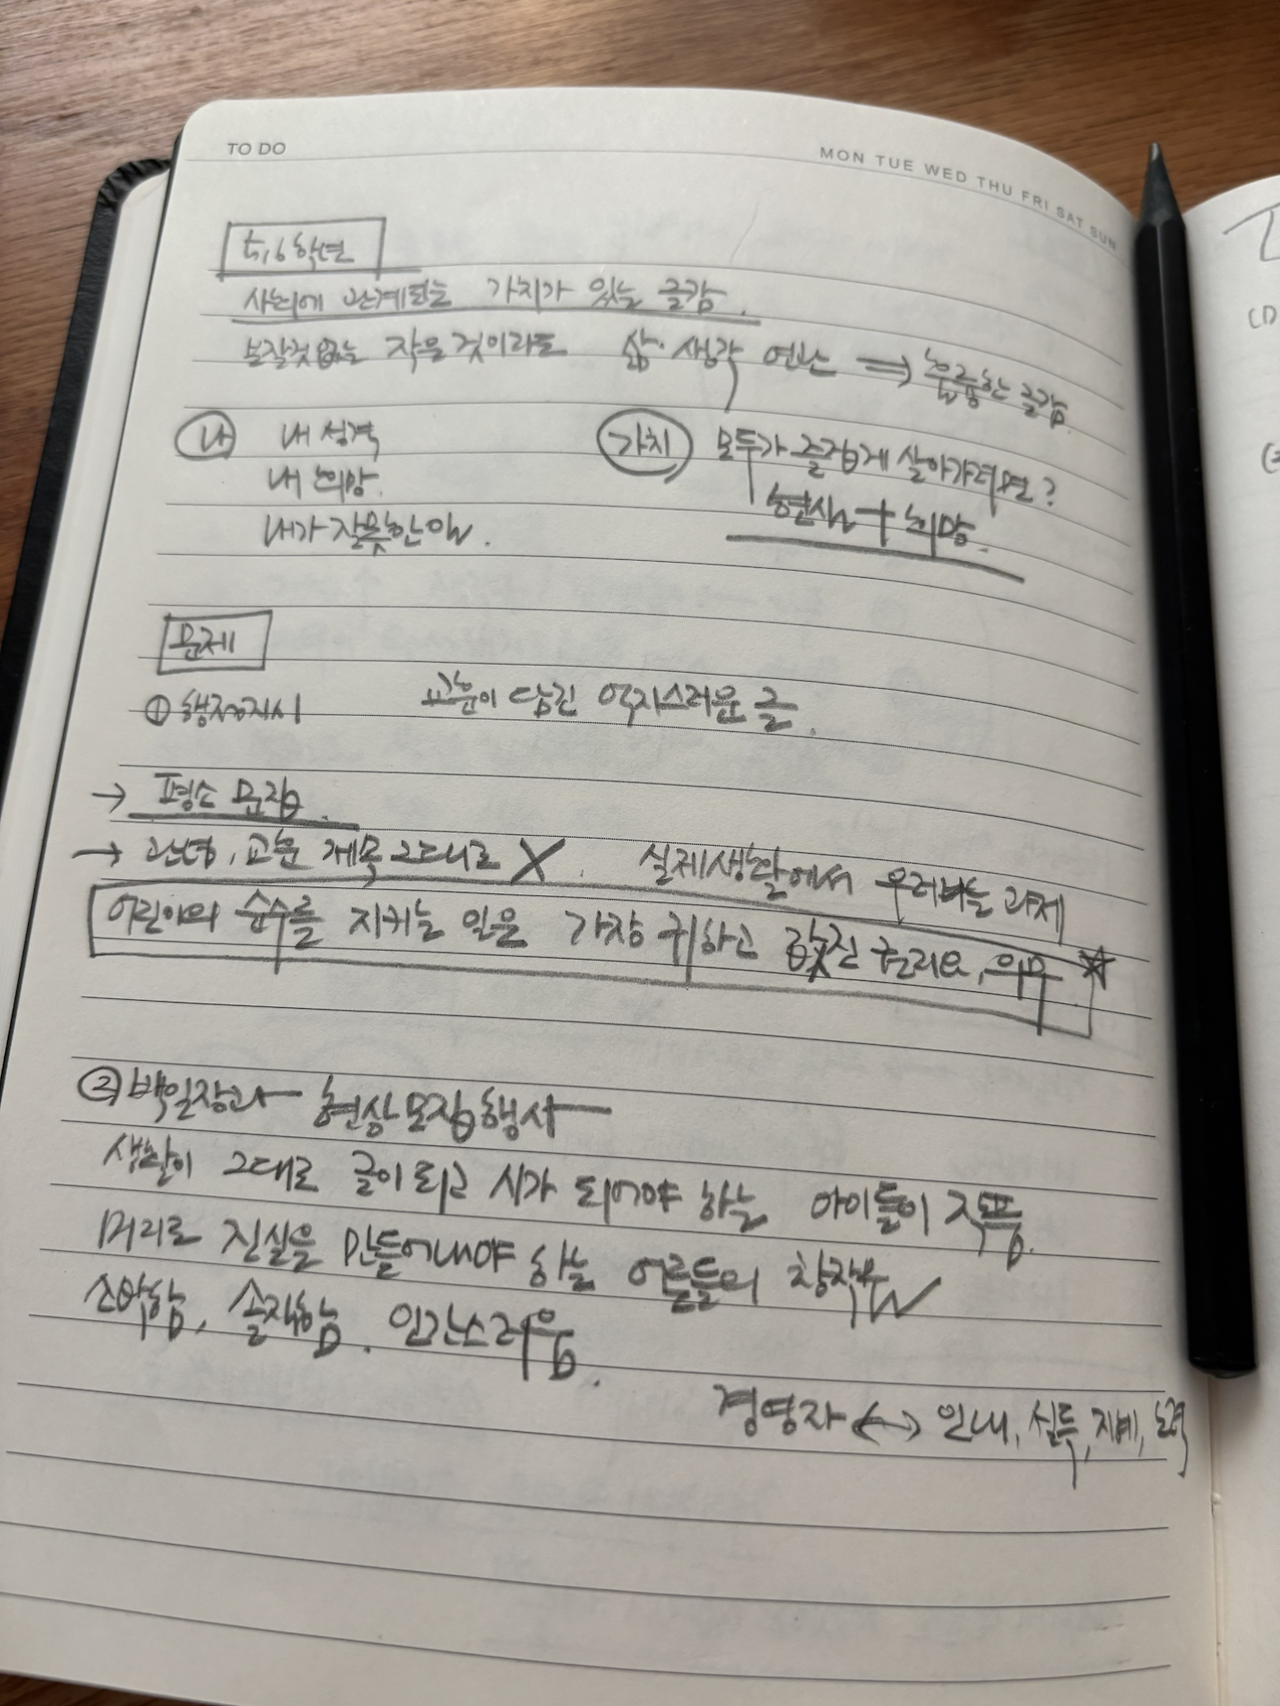 TO DO
MON TUE WED THU FRI SAT SUN
5,6학년
사회에 관계되는 가치가 있는 글감.
보잘것없는 작은 것이라도 삶·생각 연관 ⇒ 훌륭한 글감.
나 내 성격 가치 모두가 즐겁게 살아가려면?
내 희망. 현실 + 희망.
내가 잘못한 일.
문제
① 행정지시 교훈이 담긴 억지스러운 글.
→ 평소 문집.
→ 관념, 교훈 제목 그대로 X. 실제생활에서 우러나는 과제
어린이의 순수를 지키는 일은 가장 귀하고 값진 권리요, 의무 ☆
② 백일장과 현상모집행사
생활이 그대로 글이 되고 시가 되어야 하는 아이들의 작품.
머리로 진실을 만들어내야 하는 어른들의 창작
소박함, 솔직함. 인간스러움.
경영자 ↔ 인내, 지혜, 노력
(1)